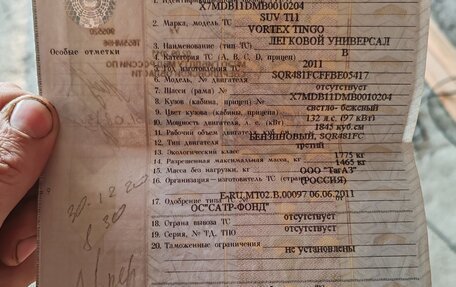 1. Идентификационный
X7MDB11DMB0010204
2. Марка, модель ТС
SUV T11
VORTEX TINGO
3. Наименование (тип ТС)
ЛЕГКОВОЙ УНИВЕРСАЛ
4. Категория ТС (A, B, C, D, прицеп)
B
5. Год изготовления ТС
2011
6. Модель, № двигателя
SQR481FCFFBE05417
7. Шасси (рама) №
отсутствует
8. Кузов (кабина, прицеп) №
X7MDB11DMB0010204
9. Цвет кузова (кабины, прицепа)
светло- бежевый
10. Мощность двигателя, л. с. (кВт)
132 л.с. (97 кВт)
11. Рабочий объем двигателя, куб. см
1845 куб.см
12. Тип двигателя
БЕНЗИНОВЫЙ, SQR481FC
13. Экологический класс
третий
14. Разрешенная максимальная масса, кг
1775 кг
15. Масса без нагрузки, кг
1465 кг
16. Организация—изготовитель ТС (страна)
ООО "ТагАЗ"
(РОССИЯ)
17. Одобрение типа ТС №
E-RU.MT02.B.00097 06.06.2011
ОС"САТР-ФОНД"
18. Страна вывоза ТС
отсутствует
19. Серия, № ТД, ТПО
отсутствует
20. Таможенные ограничения
не установлены
Особые отметки
30.12.20
8.30